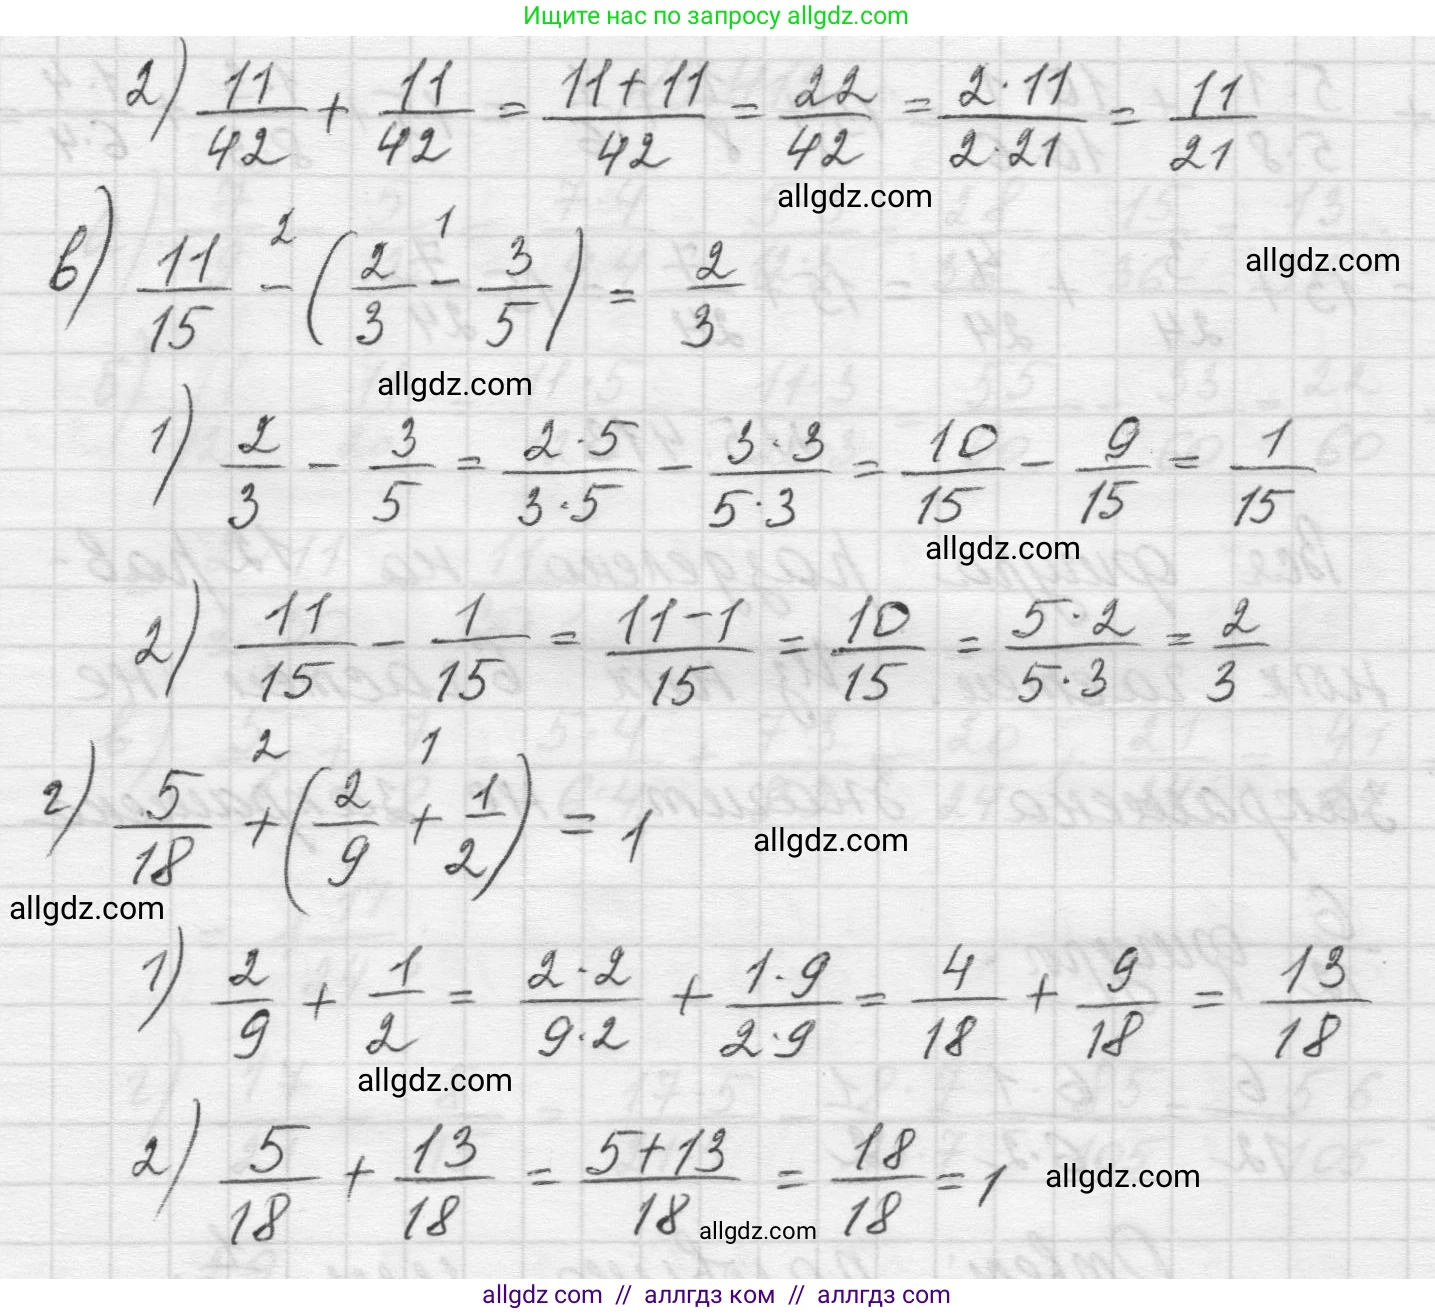 Ищите нас по запросу allgdz.com
2) 11/42 + 11/42 = (11+11)/42 = 22/42 = (2·11)/(2·21) = 11/21
allgdz.com
в) 11/15 -² (2/3 -¹ 3/5) = 2/3
allgdz.com
allgdz.com
1) 2/3 - 3/5 = (2·5)/(3·5) - (3·3)/(5·3) = 10/15 - 9/15 = 1/15
allgdz.com
2) 11/15 - 1/15 = (11-1)/15 = 10/15 = (5·2)/(5·3) = 2/3
г) 5/18 +² (2/9 +¹ 1/2) = 1
allgdz.com
allgdz.com
1) 2/9 + 1/2 = (2·2)/(9·2) + (1·9)/(2·9) = 4/18 + 9/18 = 13/18
allgdz.com
2) 5/18 + 13/18 = (5+13)/18 = 18/18 = 1
allgdz.com
allgdz.com
allgdz com // аллгдз ком // аллгдз com